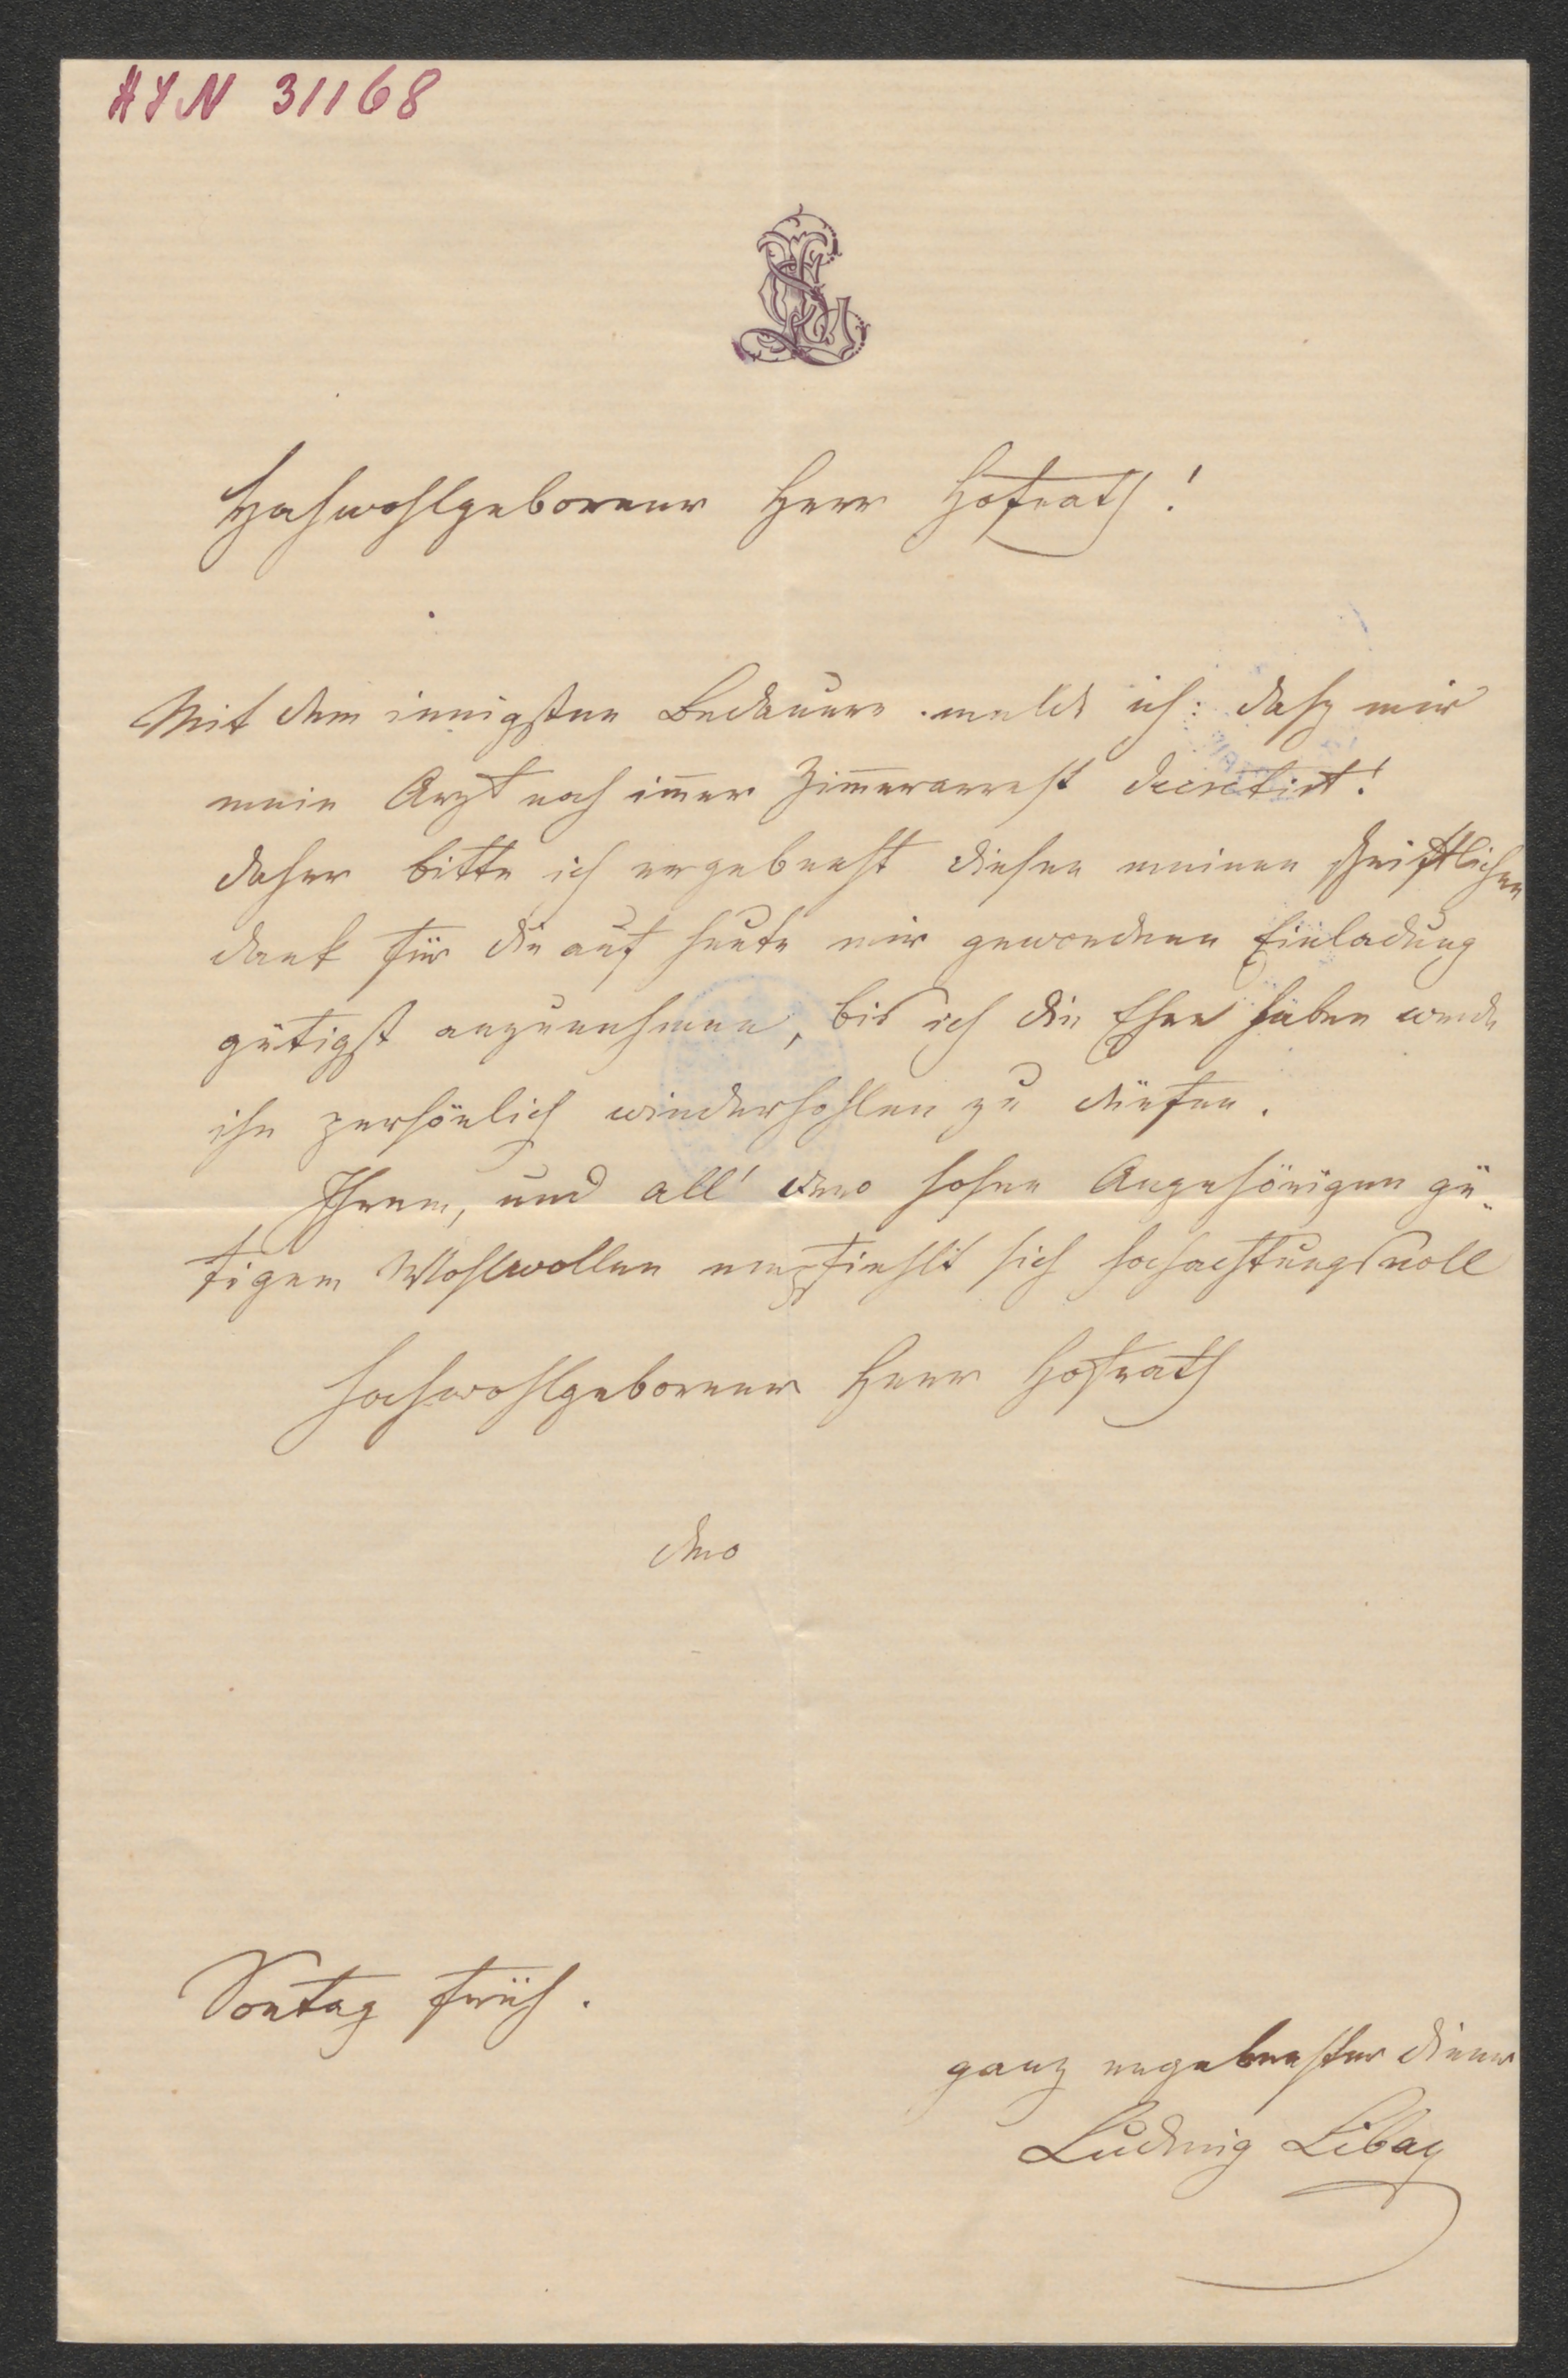 HYN 31168
Hochwohlgeborener Herr Hofrath!
Mit dem innigsten Bedauern melde ich: dasz mir
mein Arzt noch im̅er Zim̅erarrest decretirt!
daher bitte ich ergebenst diesen meinen schriftlichen
dank für die auf heute mir gewordene Einladung
gütigst anzunehmen, bis ich die Ehre haben werde
ihn persönlich wiederhohlen zu dürfen.
Ihrem, und all' dero hohen Angehörigen gü-
tigem Wohlwollen empfiehlt sich hochachtungsvoll
hochwohlgeborener Herr Hofrath
dero
Sontag früh.
ganz ergebenster diener
Ludwig Libay